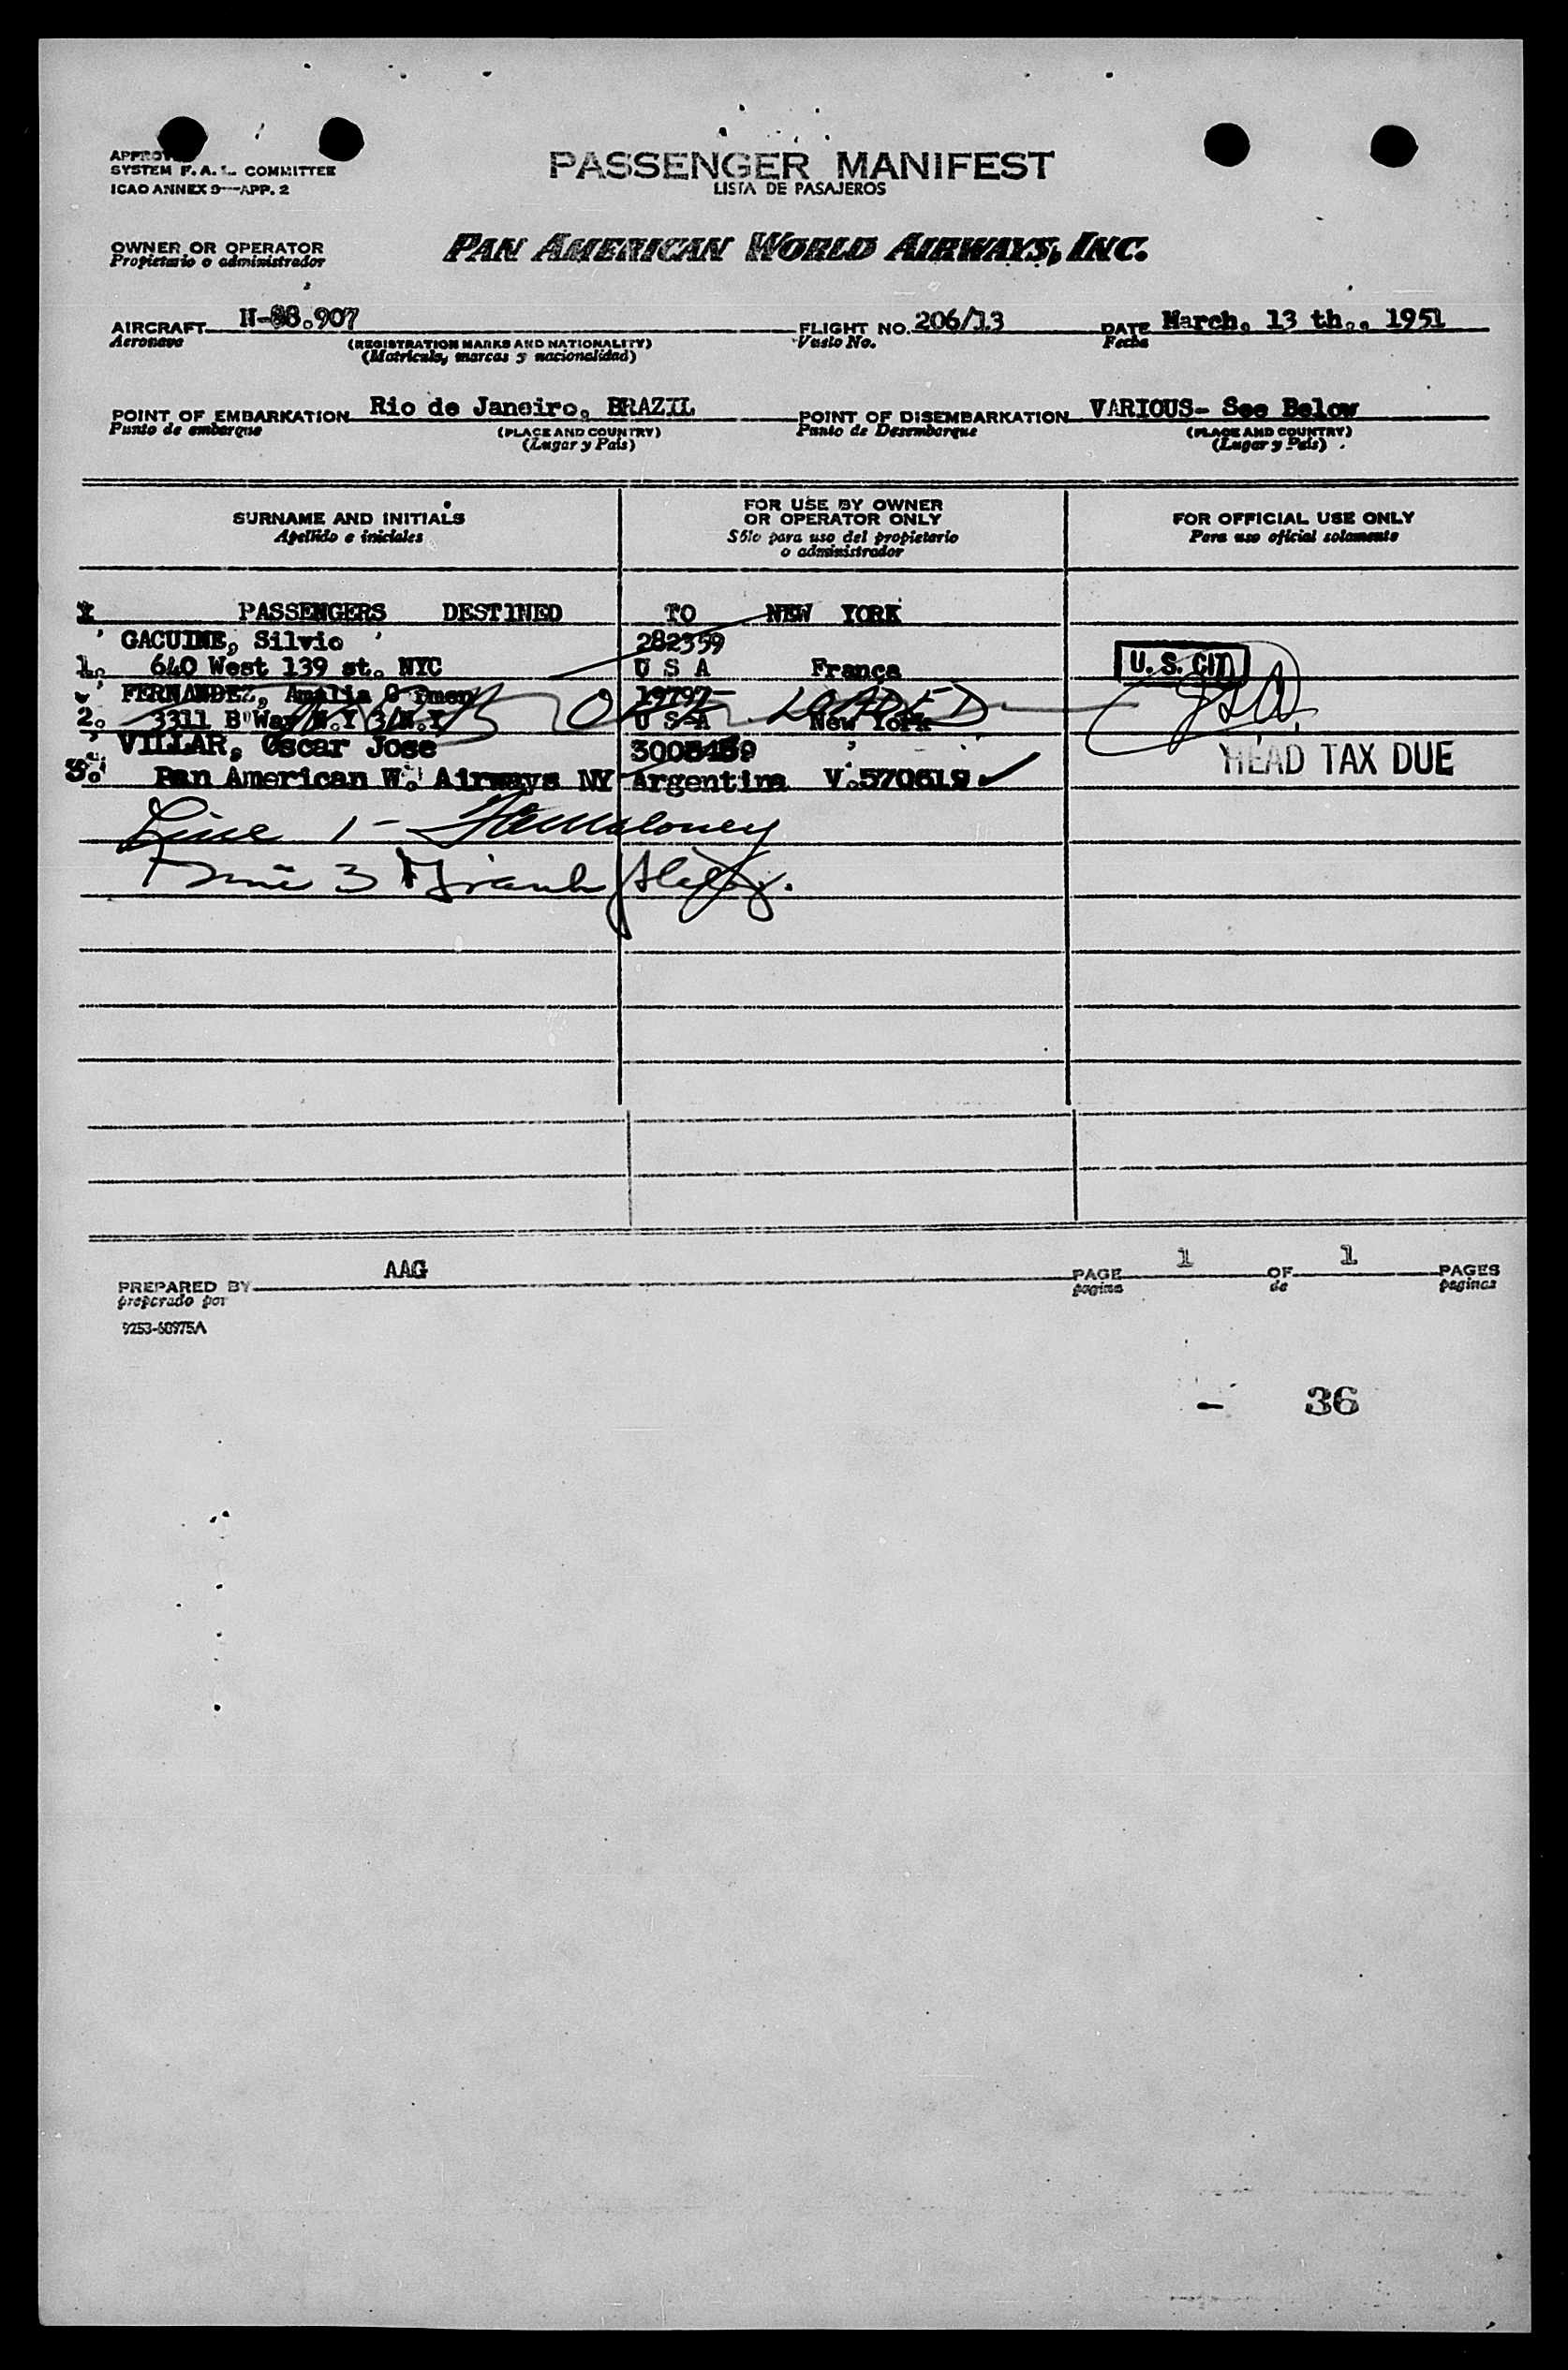 SYSTEM F. A. L. COMMITTEE
ICAO ANNEX 9—APP. 2
PASSENGER MANIFEST
LISTA DE PASAJEROS
OWNER OR OPERATOR
Propietario o administrador
PAN AMERICAN WORLD AIRWAYS, INC.
AIRCRAFT N-88.907 FLIGHT NO. 206/13 DATE March. 13 th.. 1951
Aeronave (REGISTRATION MARKS AND NATIONALITY) Vuelo No. Fecha
(Matricula, marcas y nacionalidad)
POINT OF EMBARKATION Rio de Janeiro, BRAZIL POINT OF DISEMBARKATION VARIOUS- See Below
Punto de embarque (PLACE AND COUNTRY) Punto de Desembarque (PLACE AND COUNTRY)
(Lugar y País) (Lugar y País)
SURNAME AND INITIALS
Apellido e iniciales
FOR USE BY OWNER
OR OPERATOR ONLY
Sólo para uso del propietario
o administrador
FOR OFFICIAL USE ONLY
Para uso oficial solamente
PASSENGERS DESTINED TO NEW YORK
GACUINE, Silvio 282359
1. 640 West 139 st. NYC U S A França U. S. CIT
FERNANDEZ, Amalia G 19797
2. 3311 B'Way N.Y 3/N.Y U S A New York LOADED
VILLAR, Oscar Jose 3008459
3. Pan American W. Airways NY Argentina V.570619 HEAD TAX DUE
Line 1-
3
PREPARED BY AAG PAGE 1 OF 1 PAGES
preparado por pagina de paginas
9253-60975A
- 36